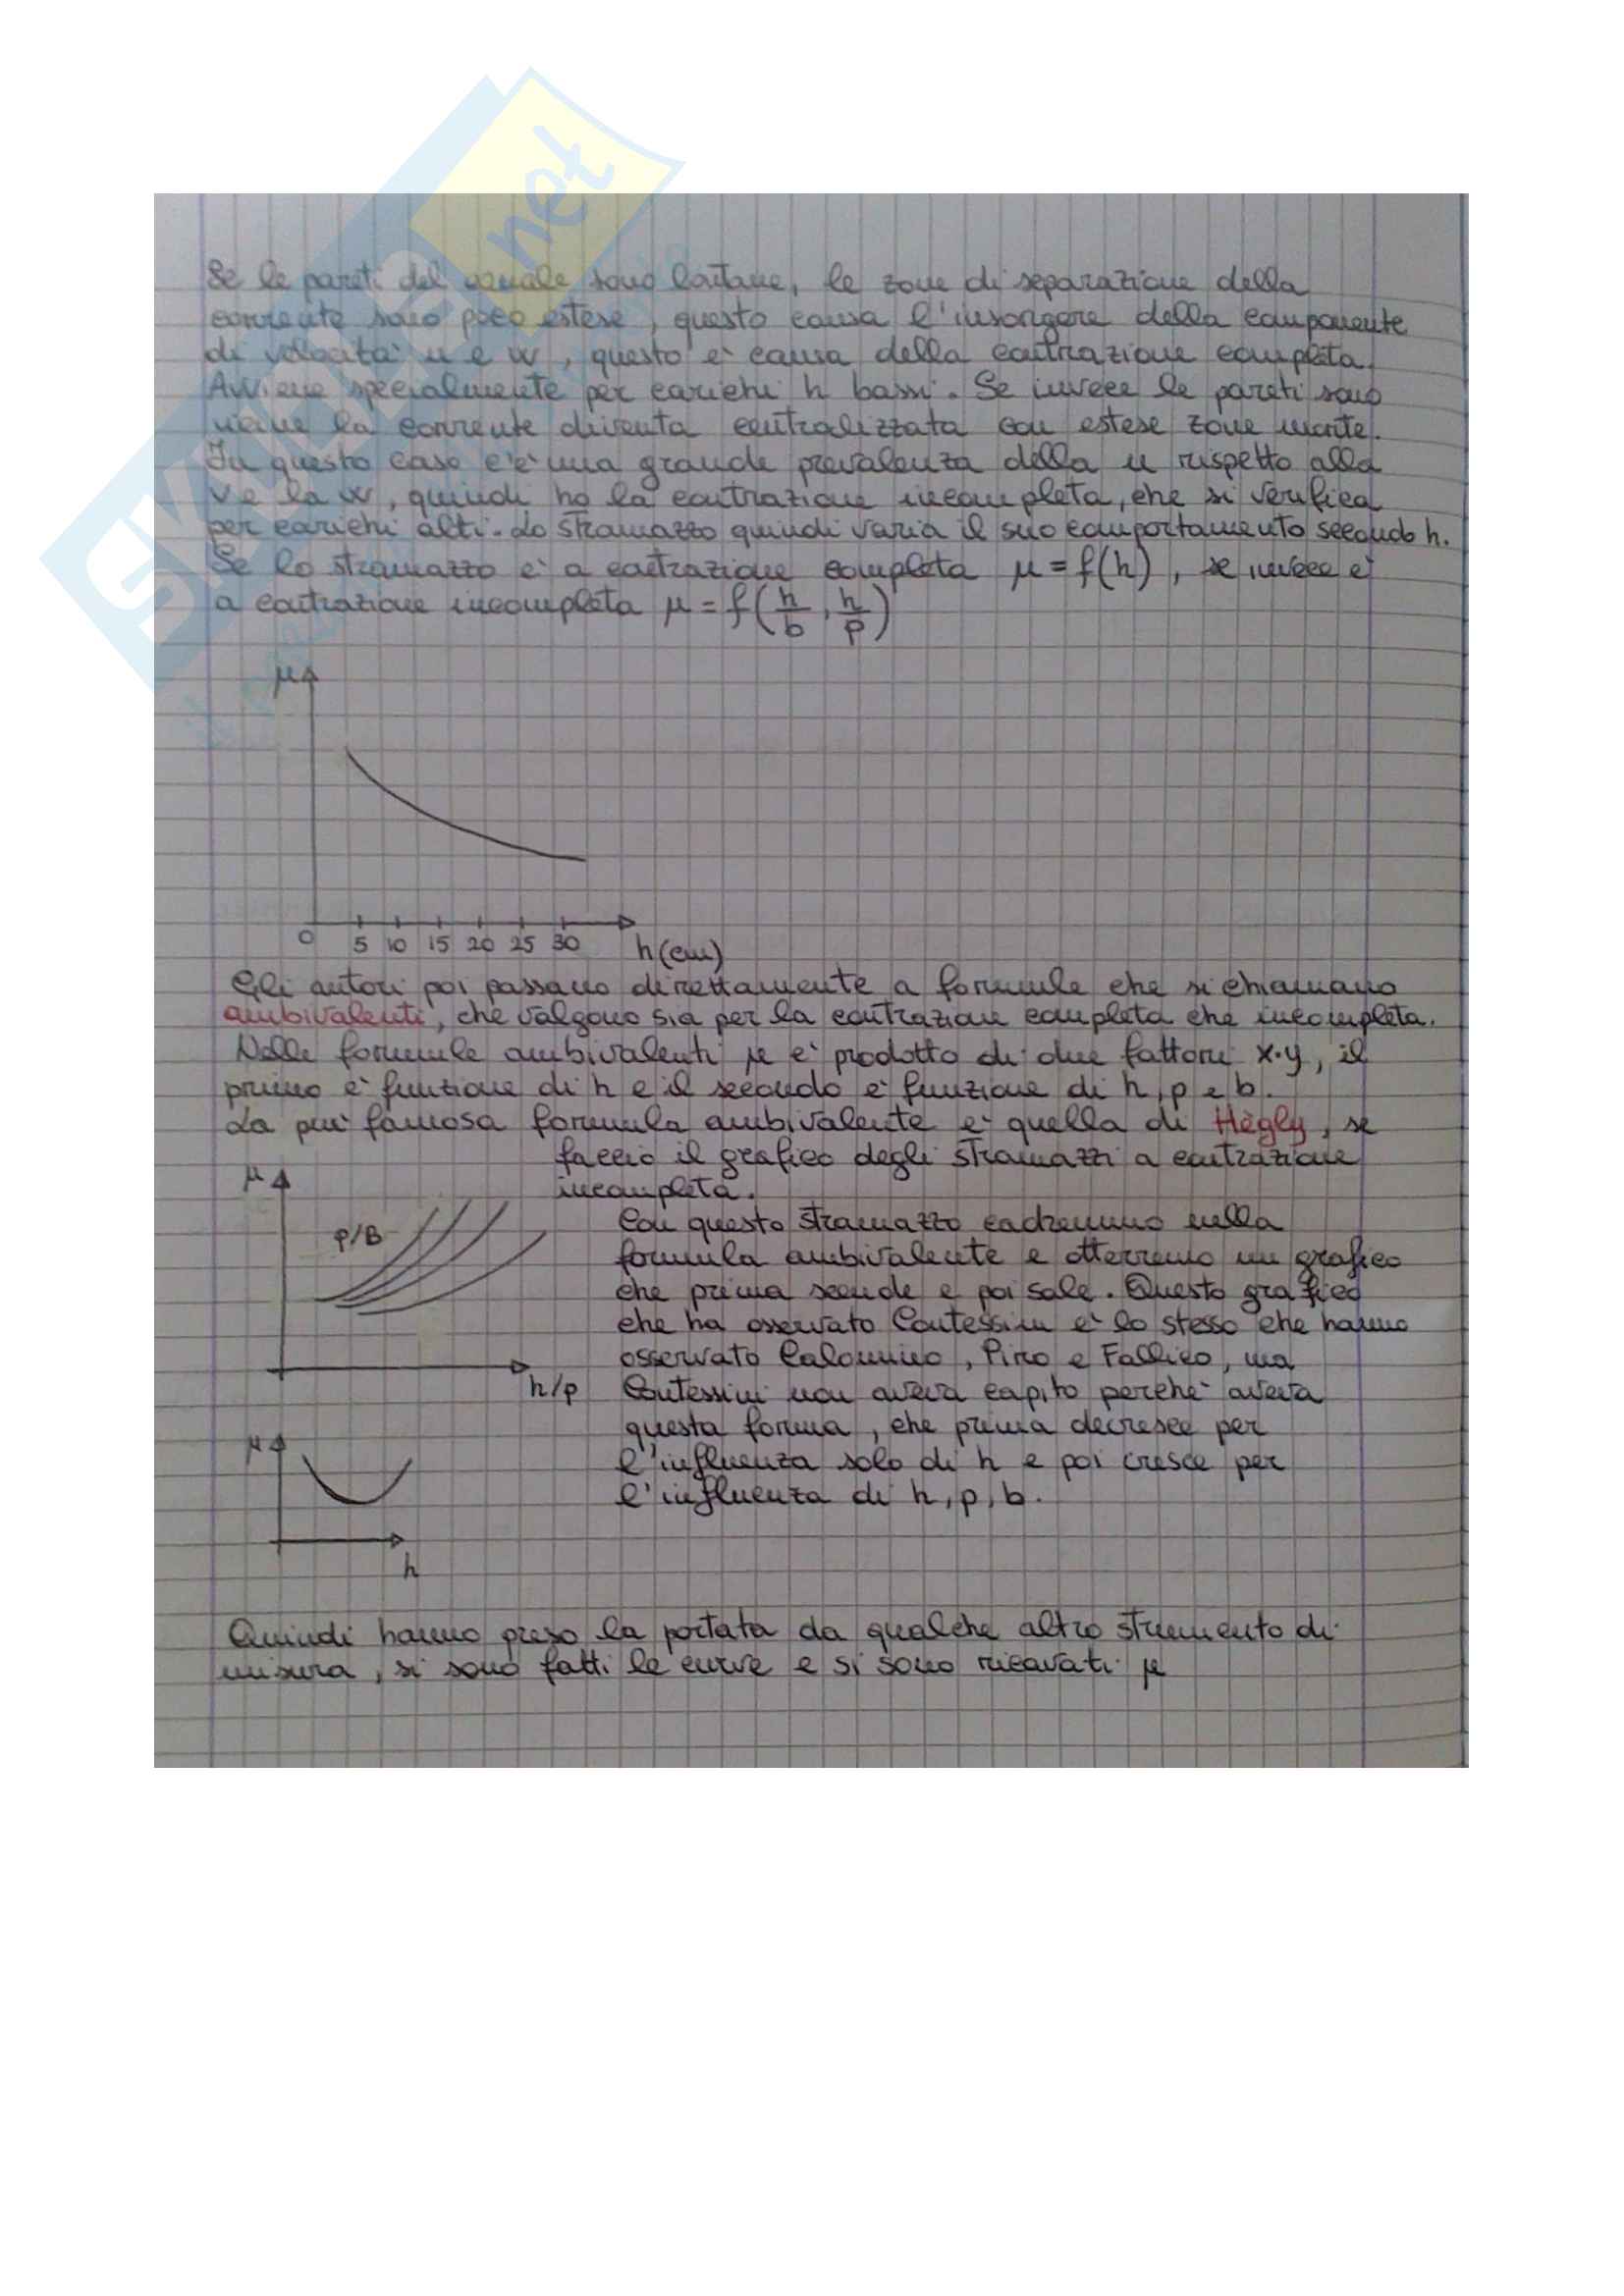 SKUOLA.net
Se le pareti del canale sono lontane, le zone di separazione della
corrente sono poco estese, questo causa l'insorgere della componente
di velocità u e w, questo è causa della contrazione completa.
Avviene specialmente per carichi h bassi. Se invece le pareti sono
vicine la corrente diventa centralizzata con estese zone morte.
In questo caso c'è una grande prevalenza della u rispetto alla
v e la w, quindi ho la contrazione incompleta, che si verifica
per carichi alti. Lo stramazzo quindi varia il suo comportamento secondo h.
Se lo stramazzo è a contrazione completa μ = f(h), se invece è
a contrazione incompleta μ = f(h/b, h/p)
μ
0 5 10 15 20 25 30 h(cm)
Gli autori poi passano direttamente a formule che si chiamano
ambivalenti, che valgono sia per la contrazione completa che incompleta.
Nelle formule ambivalenti μ è prodotto di due fattori x·y, il
primo è funzione di h e il secondo è funzione di h, p e b.
La più famosa formula ambivalente è quella di Hègly, se
faccio il grafico degli stramazzi a contrazione
incompleta.
μ
p/B
h/p
Con questo stramazzo cadremmo nella
formula ambivalente e otterremo un grafico
che prima scende e poi sale. Questo grafico
che ha osservato Contessini è lo stesso che hanno
osservato Calomino, Piro e Fallico, ma
Contessini non aveva capito perchè aveva
questa forma, che prima decresce per
l'influenza solo di h e poi cresce per
l'influenza di h, p, b.
μ
h
Quindi hanno preso la portata da qualche altro strumento di
misura, si sono fatti le curve e si sono ricavati μ